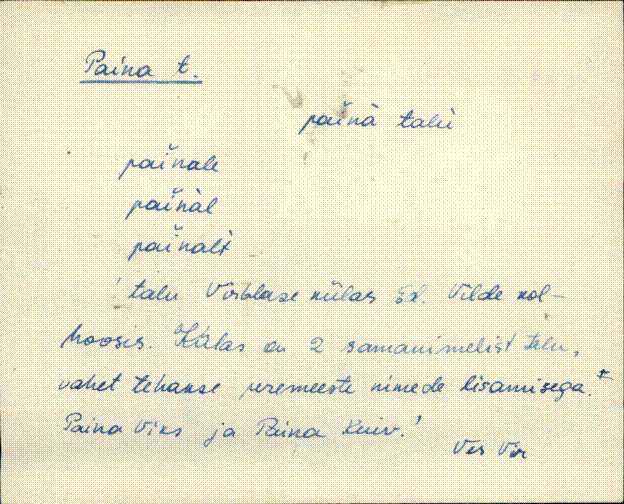 Paina t.
paĭnà talù
paĭnale
paĭnàl
paĭnalt
talu Virblase külas Ed. Vilde kol-
hoosis. Külas on 2 samanimelist talu,
vahet tehakse peremeeste nimede lisamisega.
Paina Viks ja Paina Kuiv.